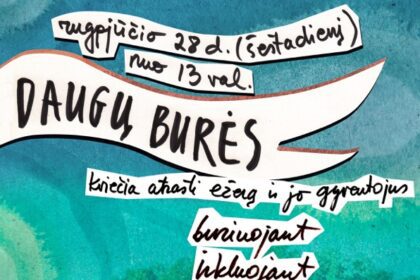 rugpjūčio 28 d. (šeštadienį)
nuo 13 val.
DAUGŲ BURĖS
kviečia atrasti ežerą ir jo gyventojus
buriuojant
irkluojant